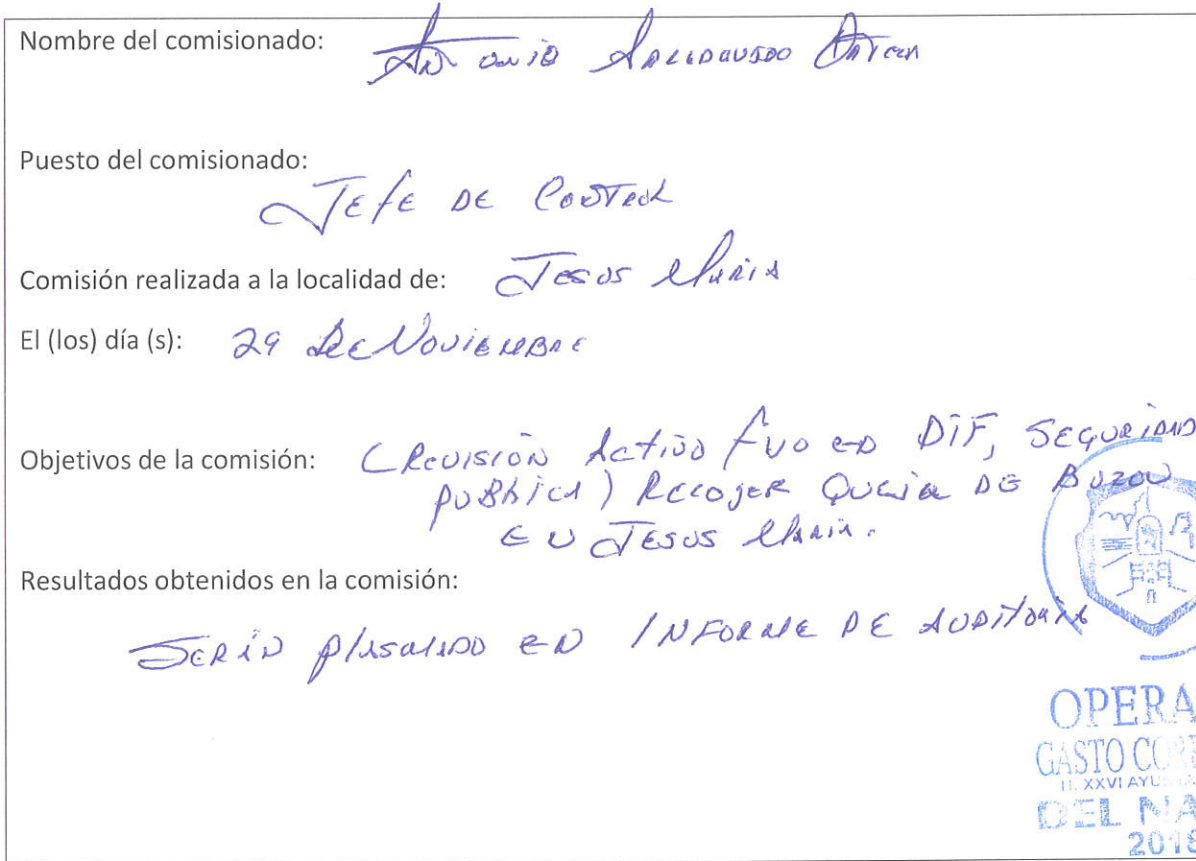 Nombre del comisionado: Antonio
Puesto del comisionado:
JEFE DE
Comisión realizada a la localidad de: Jesus Maria
El (los) día (s): 29 de NoviEMBRE
Objetivos de la comisión: (Revisión Activo en DIF, SEGURIDAD
PUBLICA) RECOJER QUEJA DE BUZON
EN JESUS Maria.
Resultados obtenidos en la comisión:
SERÁN EN INFORME DE AUDITORIA
OPERA
GASTO CO
H. XXVI AYU
DEL NA
2018